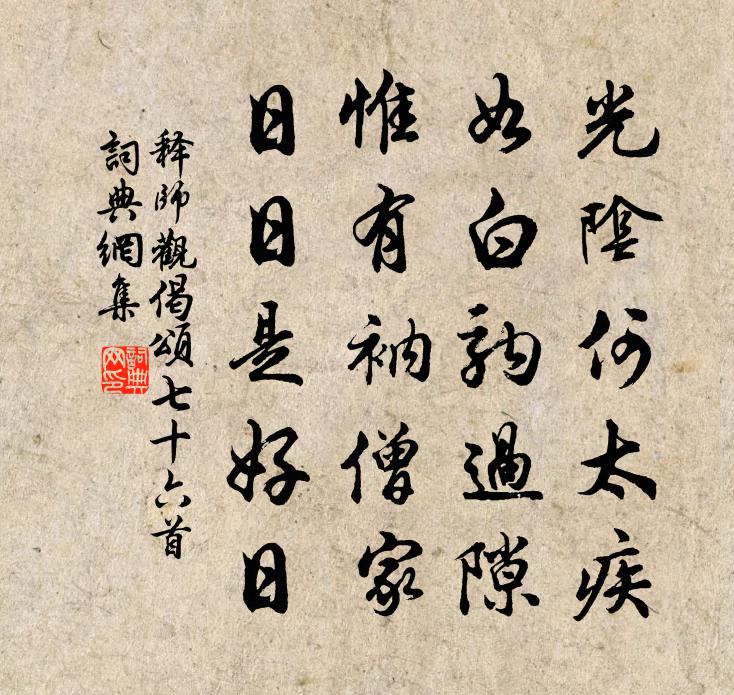 光陰何太疾
如白駒過隙
惟有衲僧家
日日是好日
释師觀偈頌七十六首
詞典網集
詞典
网印